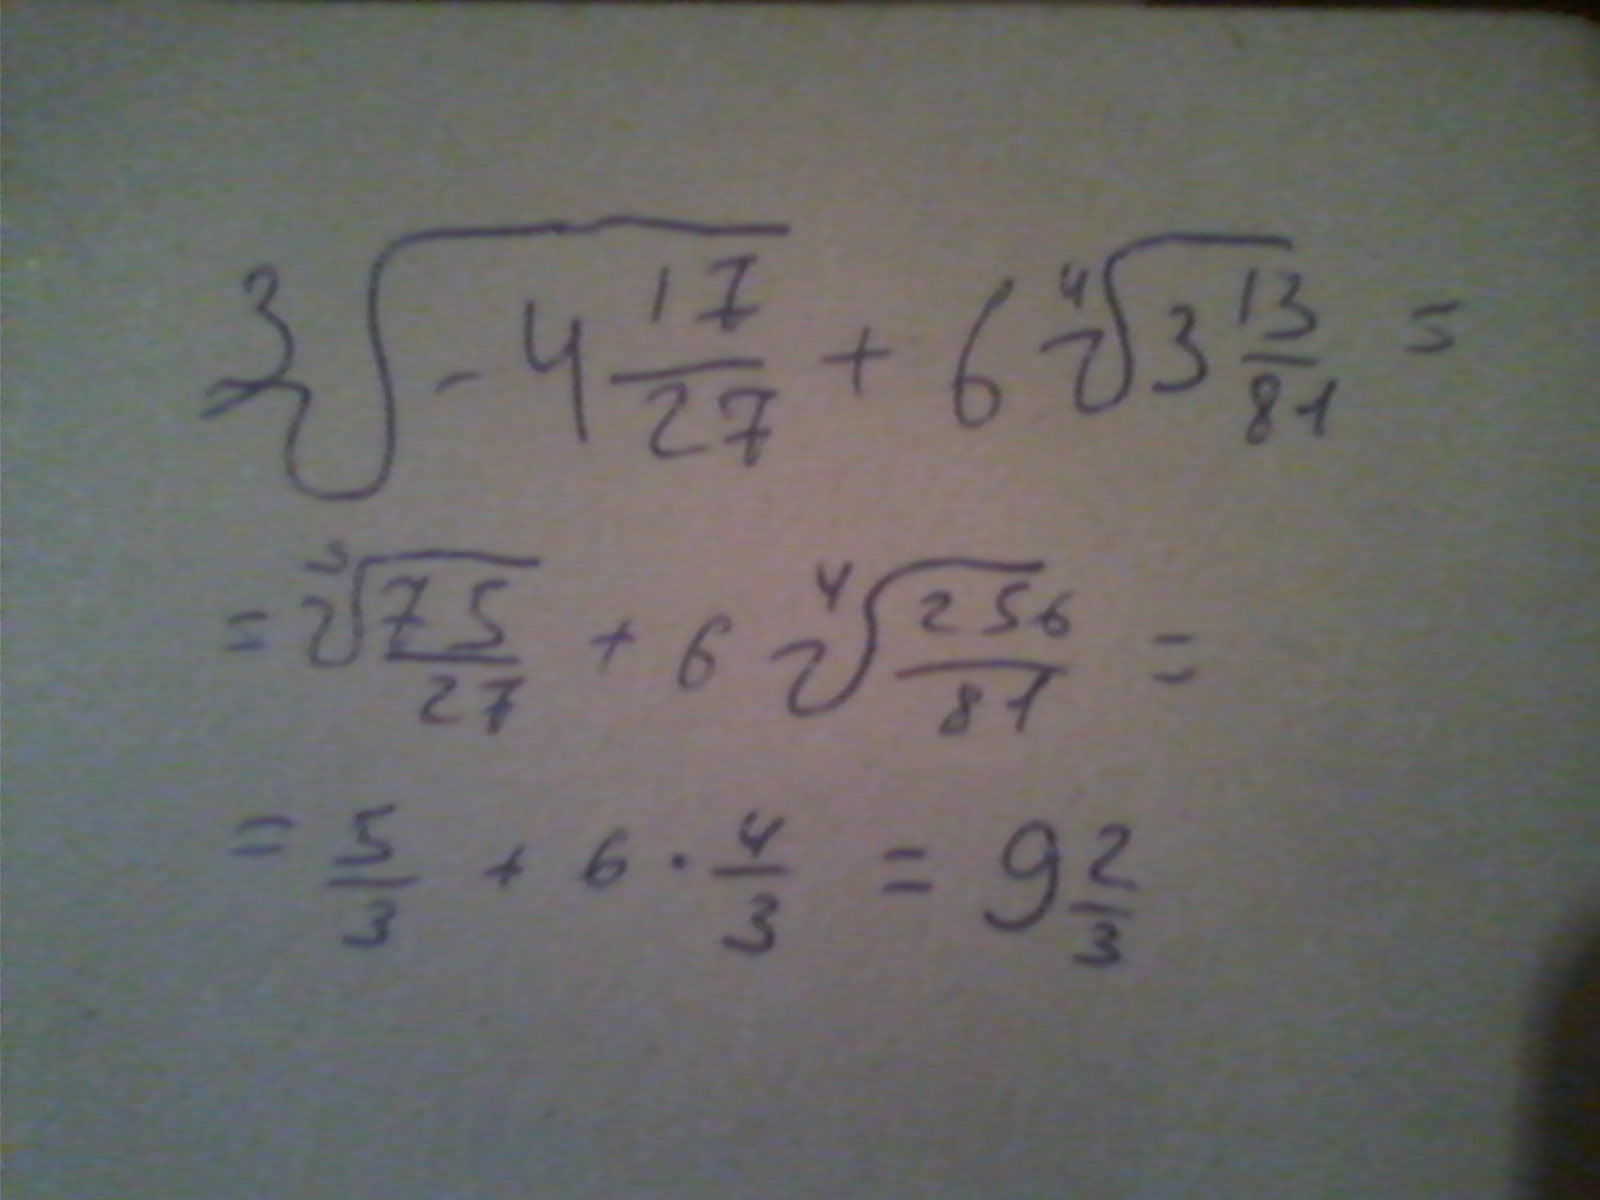 ∛(-4 17/27) + 6 ∜(3 13/81) =
= ∛(75/27) + 6 ∜(256/81) =
= 5/3 + 6 · 4/3 = 9 2/3